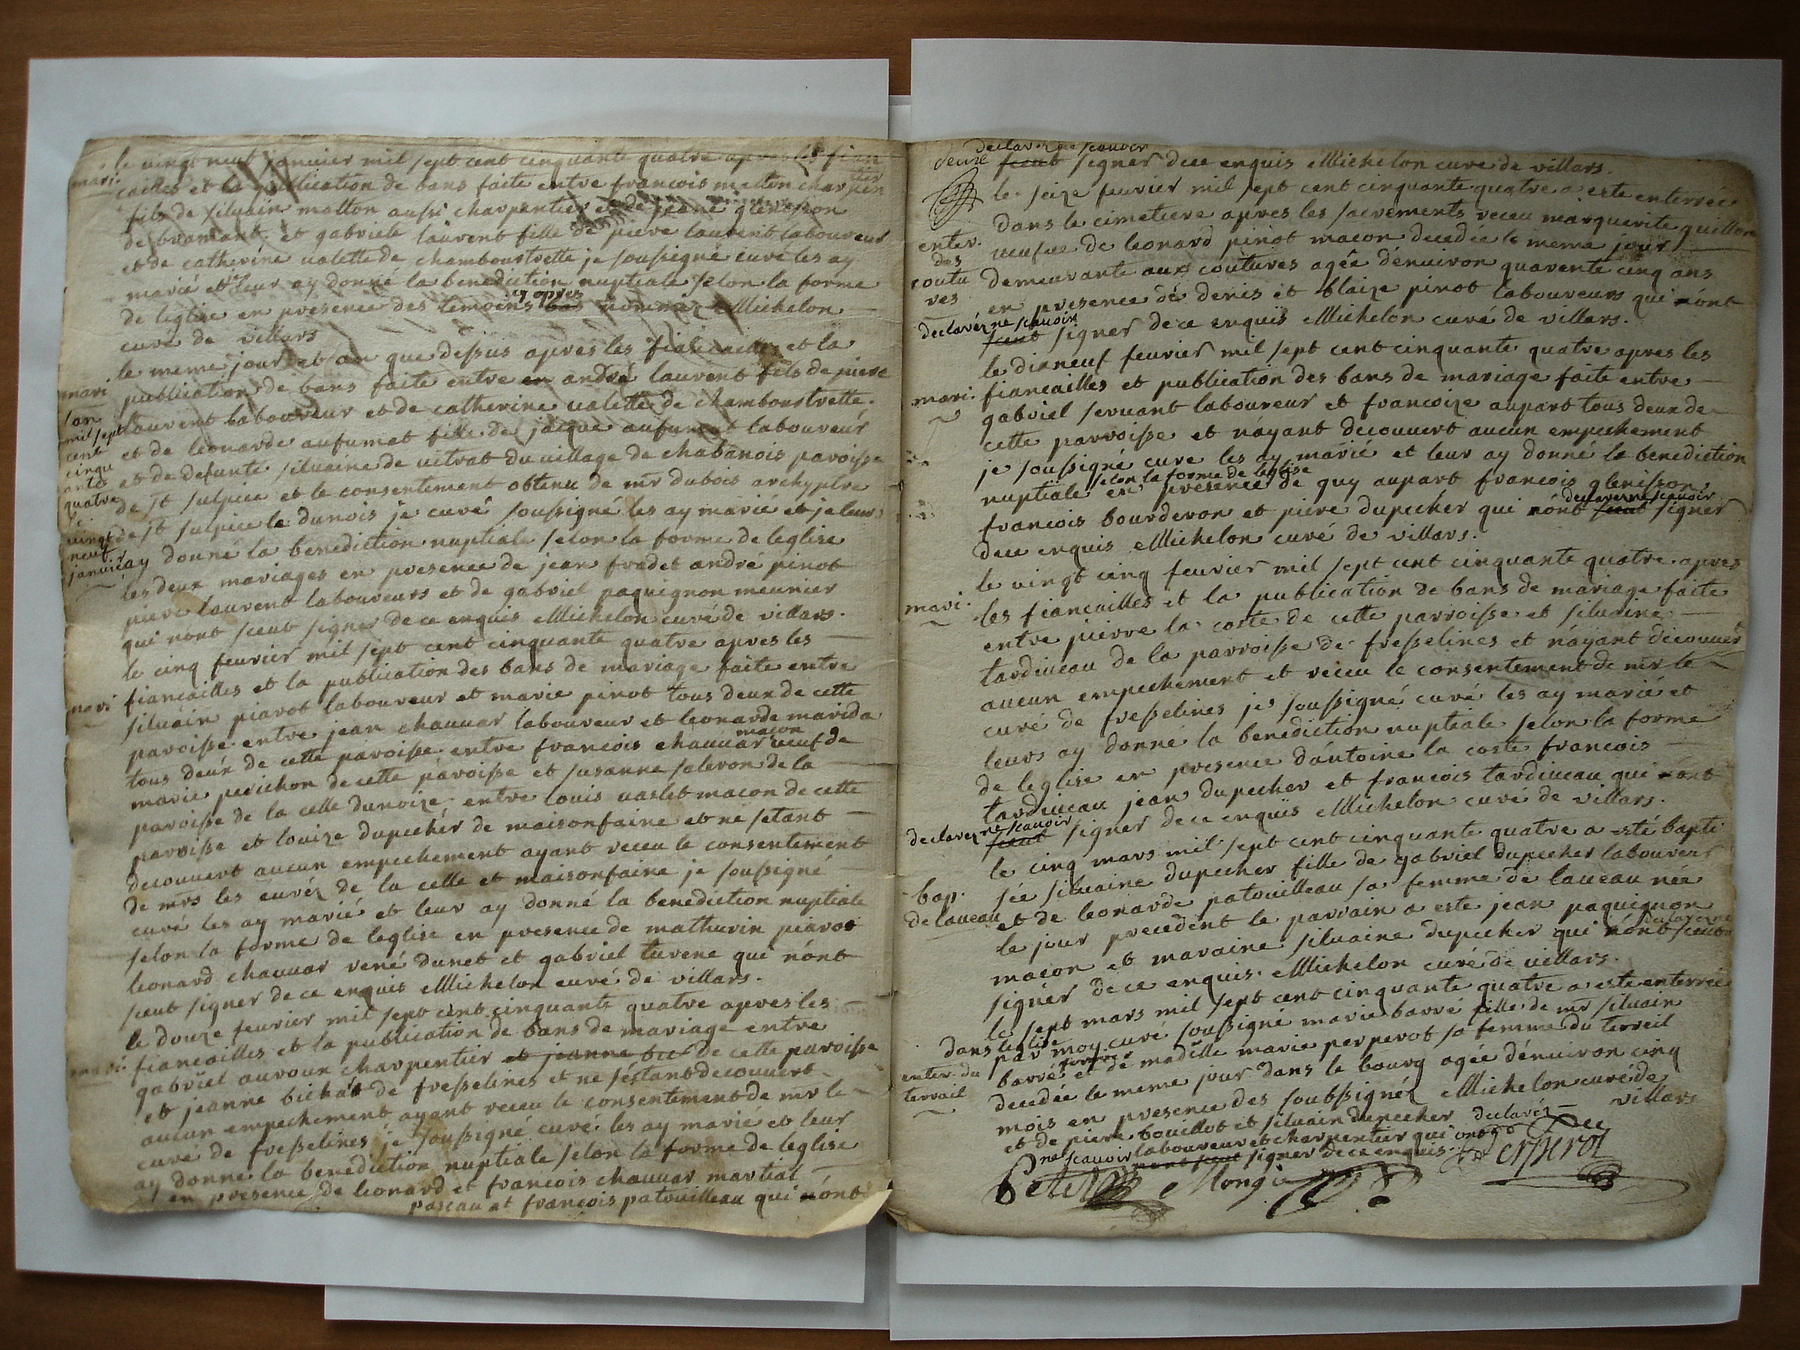 mari. le vingt neuf janvier mil sept cent cinquante quatre apres les fian
cailles et la publication de bans faite entre francois matton charpen
tier
fils de siluain matton aussi charpentier et de jeane glenisson
de bramant. et gabriele laurent fille de piere laurent laboureur
et de catherine valette de chamboustrette je soussigné curé les ay
marié et leur ay donné la benediction nuptiale selon la forme
cy apres
de leglise en presence des temoins nommez Michelon
curé de villars
le meme jour et an que dessus apres les fiancailles et la
mari publication de bans faite entre andré laurent fils de piere
lan laurent laboureur et de catherine valette de chamboustrette.
mil sept et de leonarde aufumat fille de jaque aufumat laboureur
cent
cinqu et de defunte siluaine de vitrat du village de chabanois paroisse
ante
quatre de st sulpice et le consentement obtenu de mr dubois archyptre
le
vingt de st sulpice le dunois je curé soussigné les ay marié et je leur
neuf
janvier ay donné la benediction nuptiale selon la forme de leglise
les deux mariages en presence de jean fradet andré pinot
piere laurent laboureurs et de gabriel paquignon meunier
qui nont sceut signer de ce enquis Michelon curé de villars.
le cinq feurier mil sept cent cinquante quatre apres les
mari fiancailles et la publication des bans de mariage faite entre
siluain piarot laboureur et marie pinot tous deux de cette
paroisse entre jean chauuar laboureur et leonarde marida
macon
tous deux de cette paroisse entre francois chauuar veuf de
marie perichon de cette paroisse et susanne saleron de la
paroisse de la celle dunoize, entre louis vaslet macon de cette
paroisse et louize dupecher de maisonfaine et ne setant
decouuert aucun empechement ayant receu le consentement
de mrs les curéz de la celle et maisonfaine je soussigné
curé les ay marié et leur ay donné la benediction nuptiale
selon la forme de leglise en presence de mathurin piarot
leonard chauuar rené dunet et gabriel turene qui nónt
sceut signer de ce enquis Michelon curé de villars.
le douze feurier mil sept cent cinquante quatre apres les
mari fiancailles et la publication de bans de mariage entre
gabriel auroux charpentier et jeanne de cette paroisse
et jeanne bichat de fresselines et ne séstant decouuert
aucun empechement ayant receu le consentement de mr le
curé de fresselines je soussigné curé les ay marié et leur
ay donné la benediction nuptiale selon la forme de leglise
en presence de leonard et francois chauuar martial
paseau et francois patouilleau qui nónt
declaré ne scauoir
sceut signer de ce enquis Michelon curé de villars.
le seize feurier mil sept cent cinquante quatre a esté enterrée
dans le cimetiere apres les sacrements receu marguerite guillon
enter. veufue de leonard pinot macon decedée le meme jour
des
coutu demeurante aux coutures agée dénuiron quarente cinq ans
res
en presence de denis et blaize pinot laboureurs qui nónt
declaré ne scauoir
sceut signer de ce enquis Michelon curé de villars.
le dixneuf feurier mil sept cent cinquante quatre apres les
mari. fiancailles et publication des bans de mariage faite entre
gabriel seruant laboureur et francoize aupart tous deux de
cette parroisse et nayant decouuert aucun empechement
je soussigné curé les ay marié et leur ay donné la benediction
selon la forme de leglise
nuptiale en presence de guy aupart francois glenisson
declaré ne scauoir
francois bourderon et piere dupecher qui nónt sceut signer
de ce enquis Michelon curé de villars.
le vingt cinq feurier mil sept cent cinquante quatre. apres
mari. les fiancailles et la publication de bans de mariage faite
entre pierre la coste de cette parroisse et siluaine
tardiueau de la parroisse de fresselines et náyant decouuert
aucun empechement et receu le consentement de mr le
curé de fresselines je soussigné curé les ay marié et
leurs ay donné la benediction nuptiale selon la forme
de leglise en presence dántoine la coste francois
tardiueau jean dupecher et francois tardiueau qui nónt
declarez ne scauoir
sceut signer de ce enquis Michelon curé de villars.
le cinq mars mil sept cent cinquante quatre a esté bapti
bap. sée siluaine dupecher fille de gabriel dupecher laboureur
de laueau et de leonarde patouilleau sa femme de laueau née
le jour precedent le parrain a esté jean paquignon
declaré ne
macon et maraine siluaine dupecher qui nónt sceut
signér de ce enquis. Michelon curé de villars.
le sept mars mil sept cent cinquante quatre a esté enterrée
dans leglise
par moy curé soussigné marie barré fille de mr siluain
enter. du barré et de madelle marie perperot sa femme du terreil
terrail
decedée le meme jour dans le bourg agée dénuiron cinq
mois en presence des soubssignéz Michelon curé de
villars
et de piere bouillot et siluain dupecher declaréz
ne scauoir laboureur et charpentier qui ont
nont sceut signer de ce enquis.
Perperot